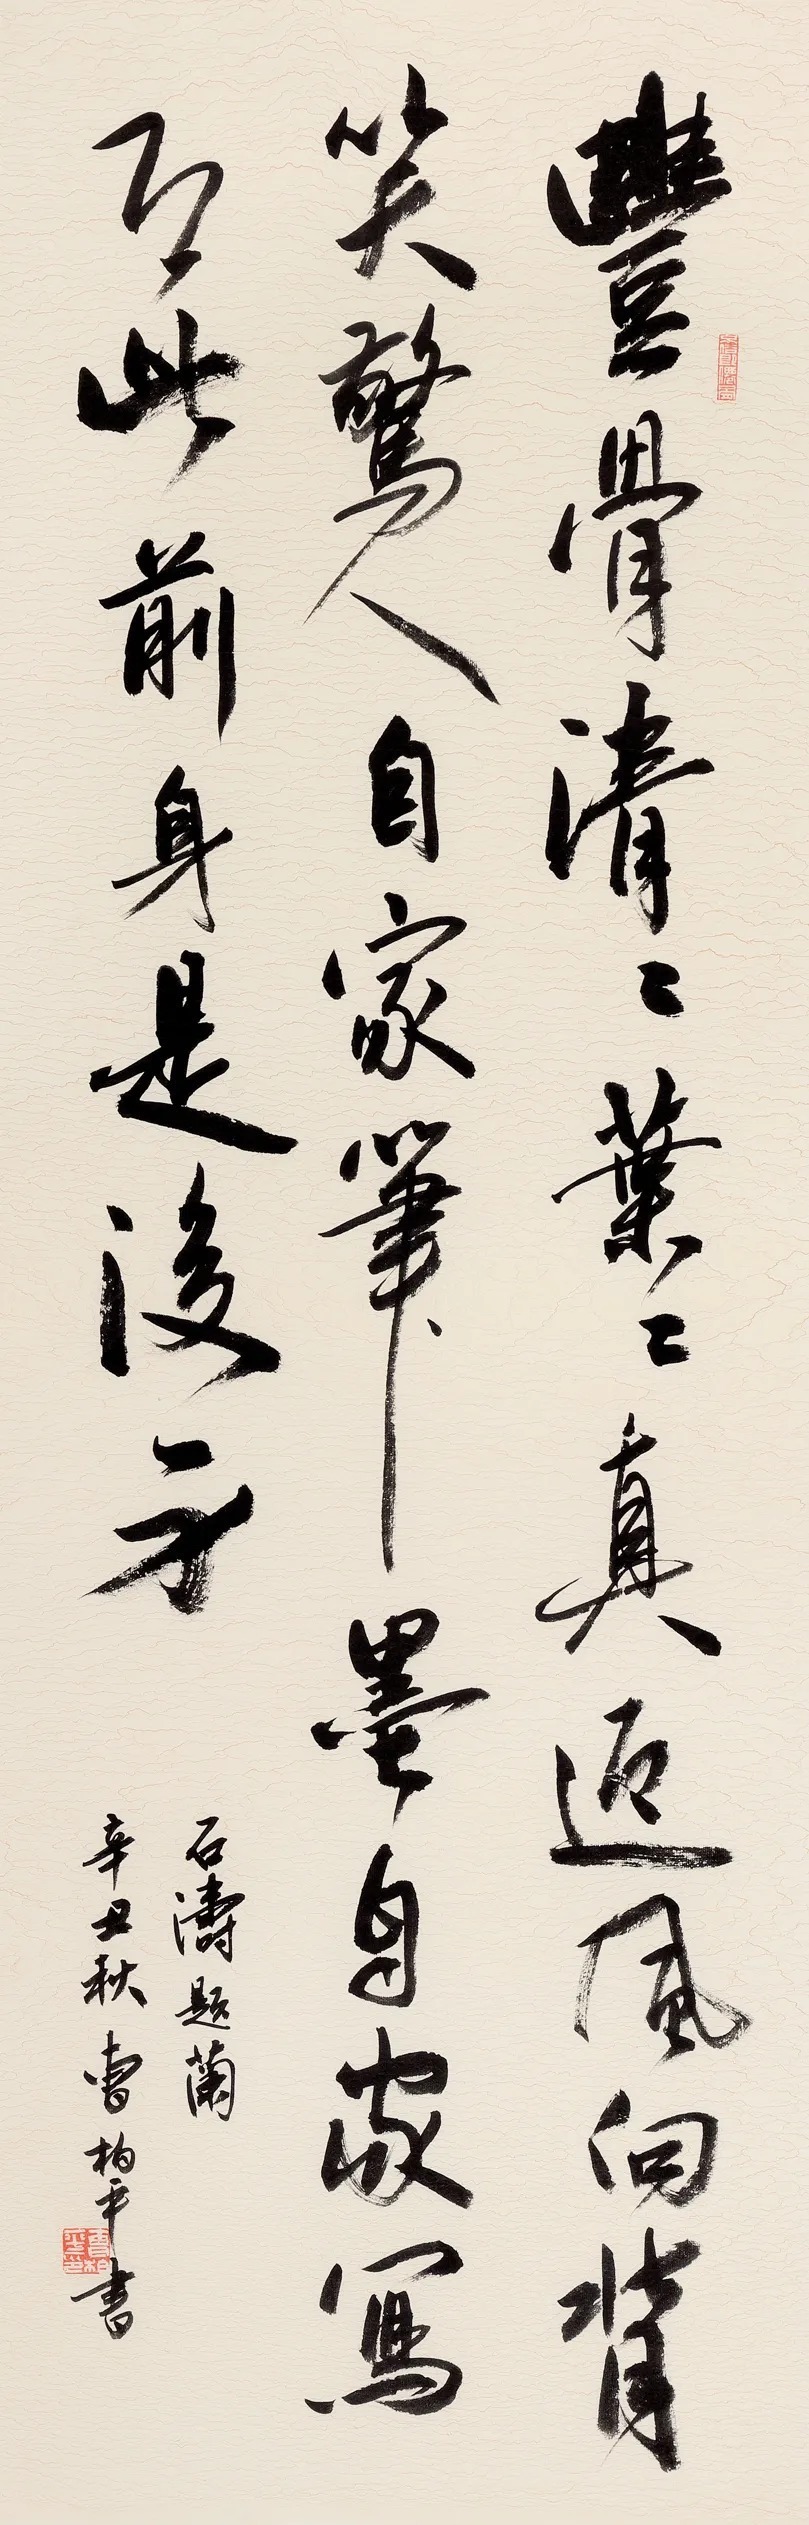 豐骨清々葉々真迎風向背
笑驚人自家筆墨自家寫
即此前身是後身
石濤題蘭
辛丑秋曹柏平書